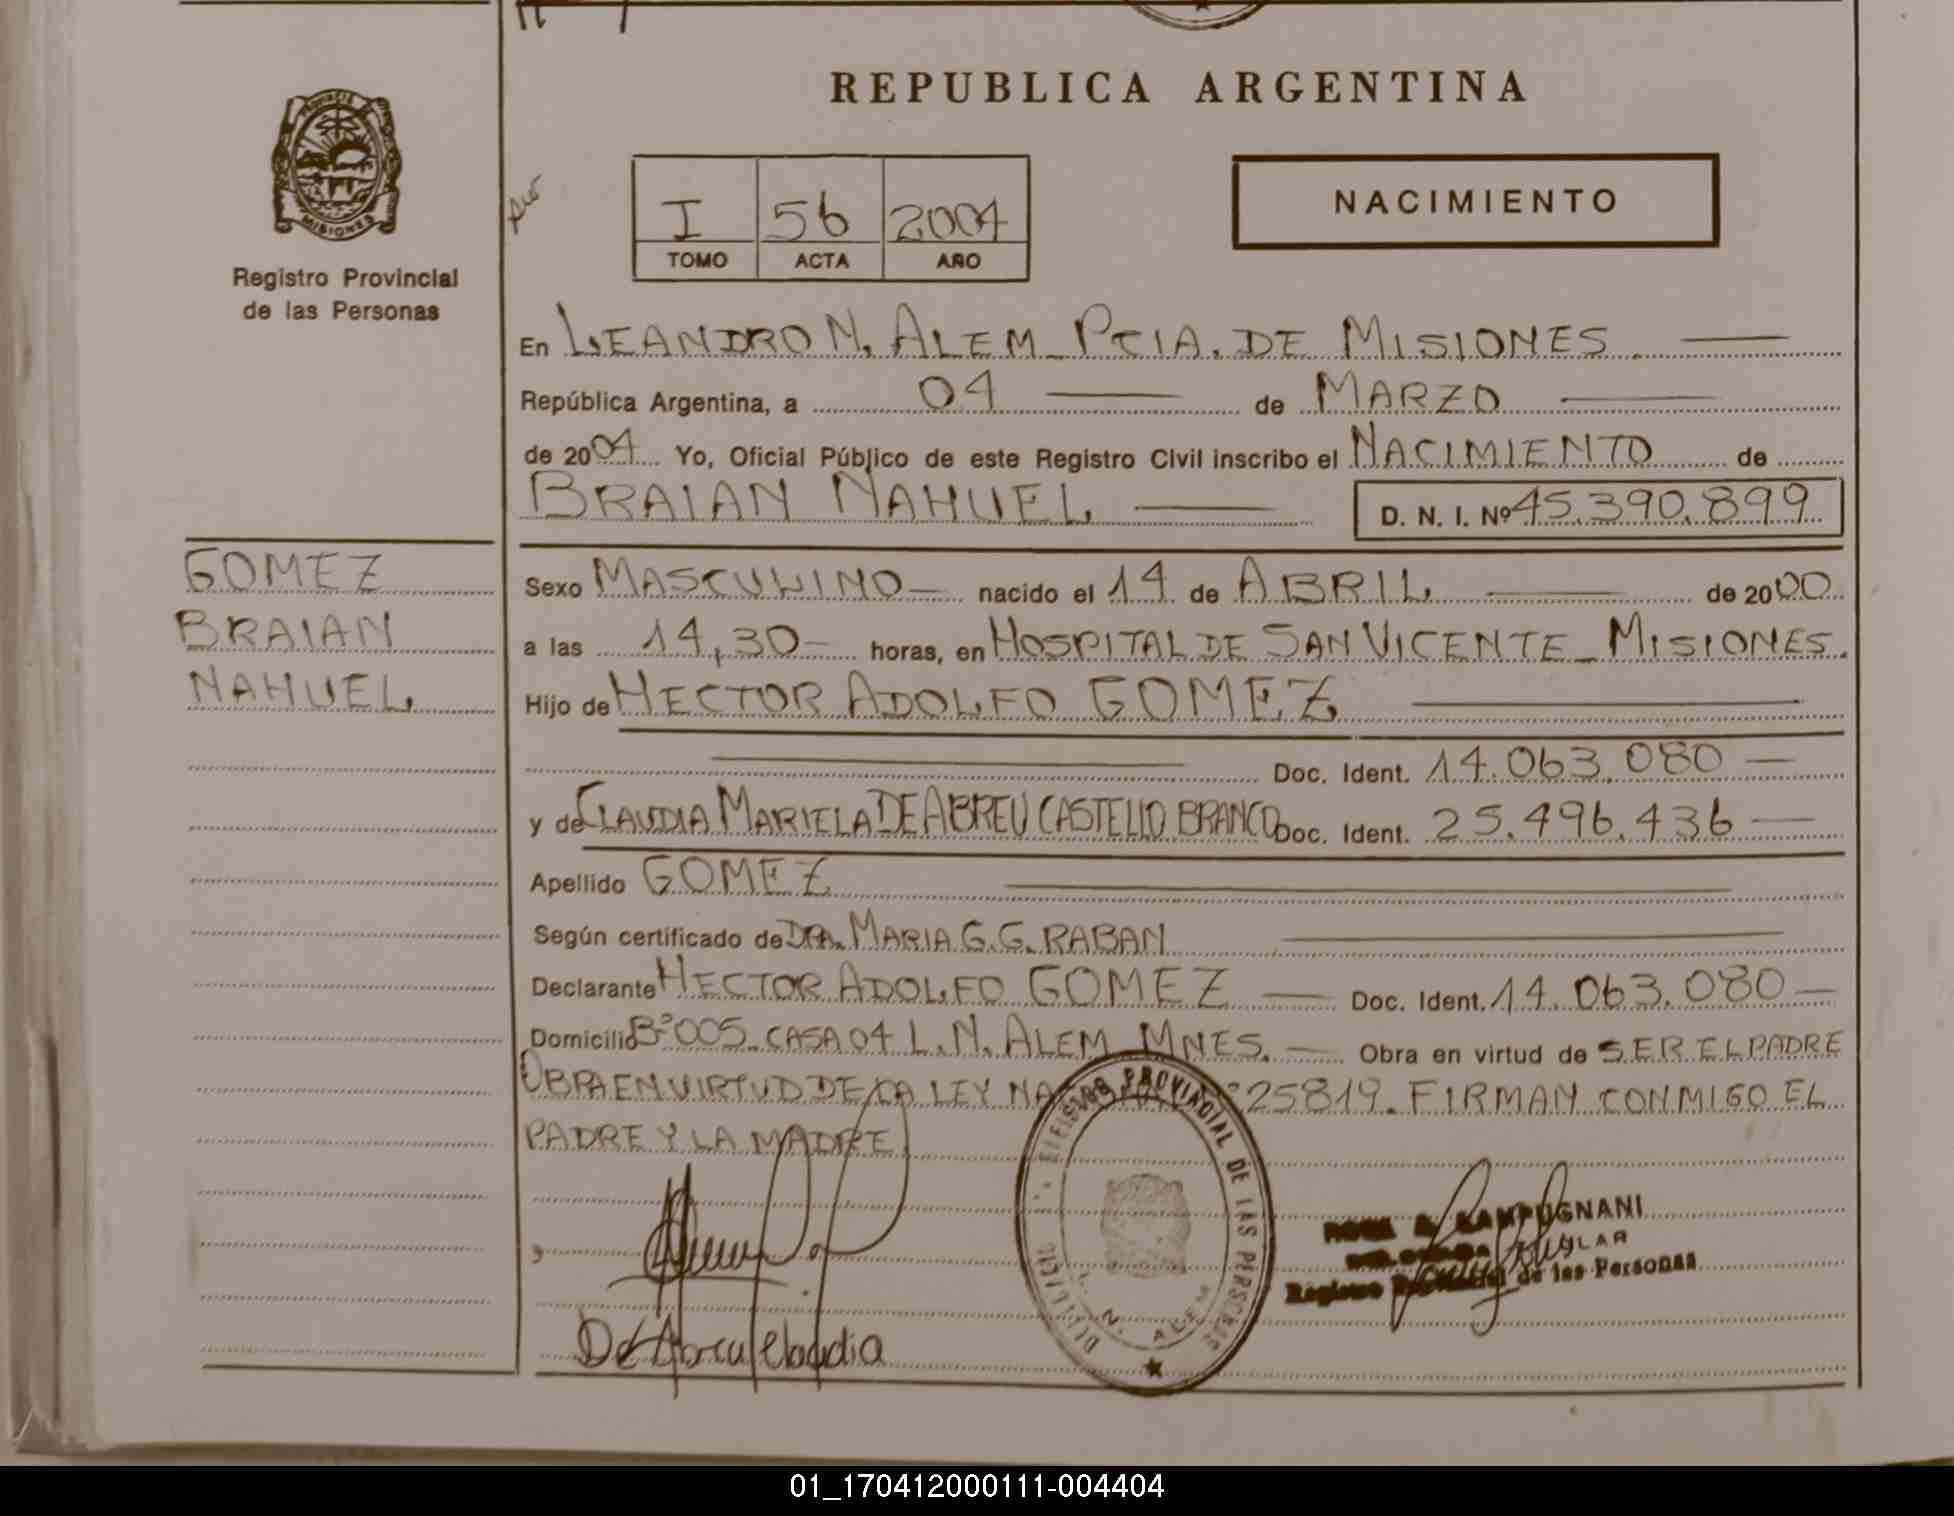 REPUBLICA ARGENTINA
PROVINCIA DE
MISIONES
Registro Provincial
de las Personas
I 56 2004
TOMO ACTA AÑO
NACIMIENTO
En LEANDRO N. ALEM - PCIA. DE MISIONES
República Argentina, a 04 de MARZO
de 2004 Yo, Oficial Público de este Registro Civil inscribo el NACIMIENTO de
BRAIAN NAHUEL D. N. I. Nº 45.390.899
GOMEZ
BRAIAN
NAHUEL
Sexo MASCULINO nacido el 14 de ABRIL de 2000
a las 14,30 horas, en HOSPITAL DE SAN VICENTE - MISIONES.
Hijo de HECTOR ADOLFO GOMEZ
Doc. Ident. 14.063.080
y de CLAUDIA MARIELA DE ABREU CASTELLO BRANCO Doc. Ident. 25.496.436
Apellido GOMEZ
Según certificado de DRA. MARIA G. G. RABAN
Declarante HECTOR ADOLFO GOMEZ Doc. Ident. 14.063.080
Domicilio Bº 005 - CASA 04 L. N. ALEM MNES. Obra en virtud de SER EL PADRE
OBRA EN VIRTUD DE LA LEY 25819. FIRMAN CONMIGO EL
PADRE Y LA MADRE
PROVINCIAL DE LAS PERSONAS
L. N. ALEM
De Abreu Claudia
LAMPUGNANI
TITULAR
Registro Provincial de las Personas
01_170412000111-004404